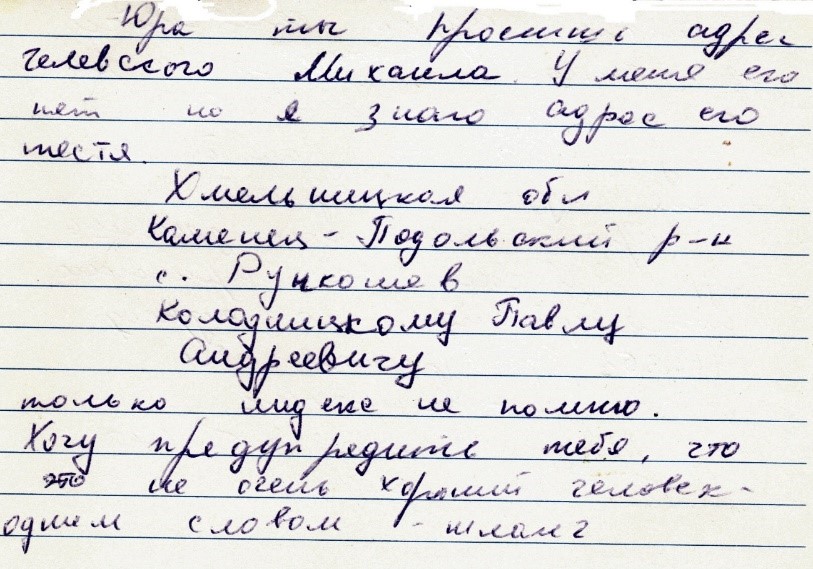 Юра ты просишь адрес
Челевского Михаила. У меня его
нет но я знаю адрес его
тестя.
Хмельницкая обл
Каменец-Подольский р-н
с. Рункошев
Колодницкому Павлу
Андреевичу
только индекс не помню.
Хочу предупредить тебя, что
это не очень хороший человек-
одним словом - шланг